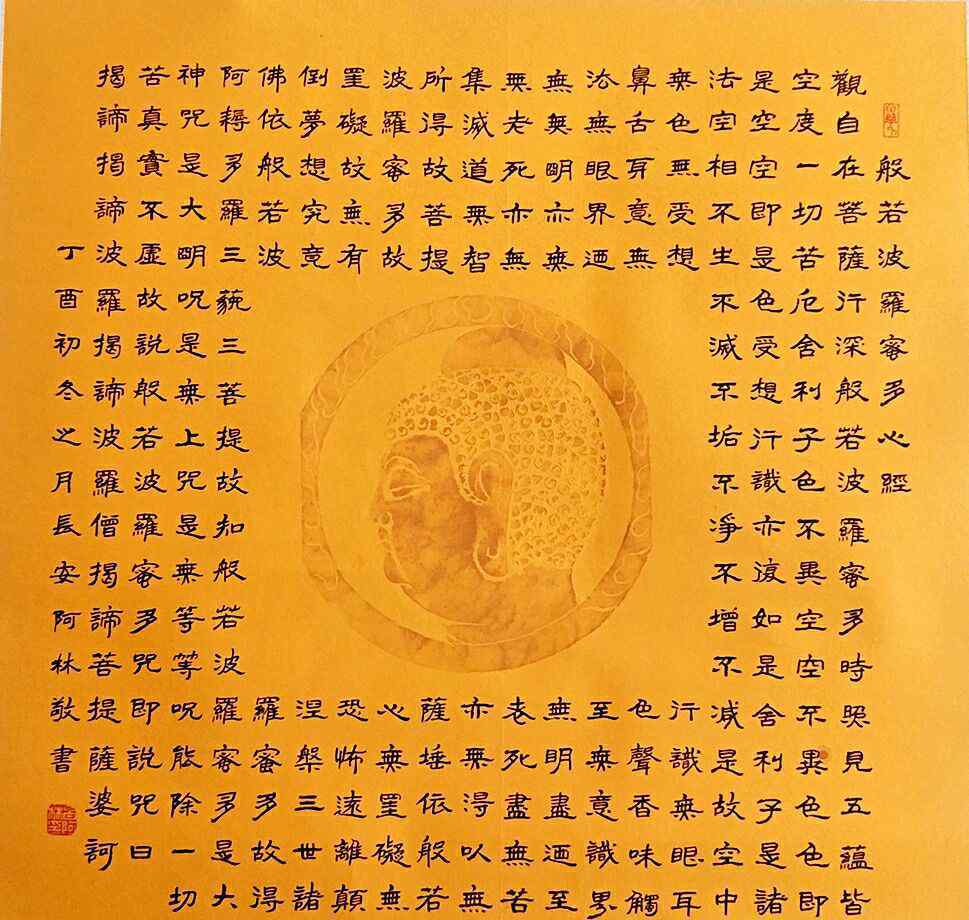 般若波羅蜜多心經
觀自在菩薩行深般若波羅蜜多時照見五蘊皆
空度一切苦厄舍利子色不異空空不異色色即
是空空即是色受想行識亦復如是舍利子是諸
法空相不生不滅不垢不淨不增不減是故空中
無色無受想行識無眼耳
鼻舌身意無色聲香味觸
法無眼界迺至無意識界
無無明亦無無明盡迺至
無老死亦無老死盡無苦
集滅道無智亦無得以無
所得故菩提薩埵依般若
波羅蜜多故心無罣礙無
罣礙故無有恐怖遠離顛
倒夢想究竟涅槃三世諸
佛依般若波羅蜜多故得
阿耨多羅三藐三菩提故知般若波羅蜜多是大
神咒是大明咒是無上咒是無等等咒能除一切
苦真實不虛故說般若波羅蜜多咒即說咒曰
揭諦揭諦波羅揭諦波羅僧揭諦菩提薩婆訶
丁酉初冬之月長安阿林敬書